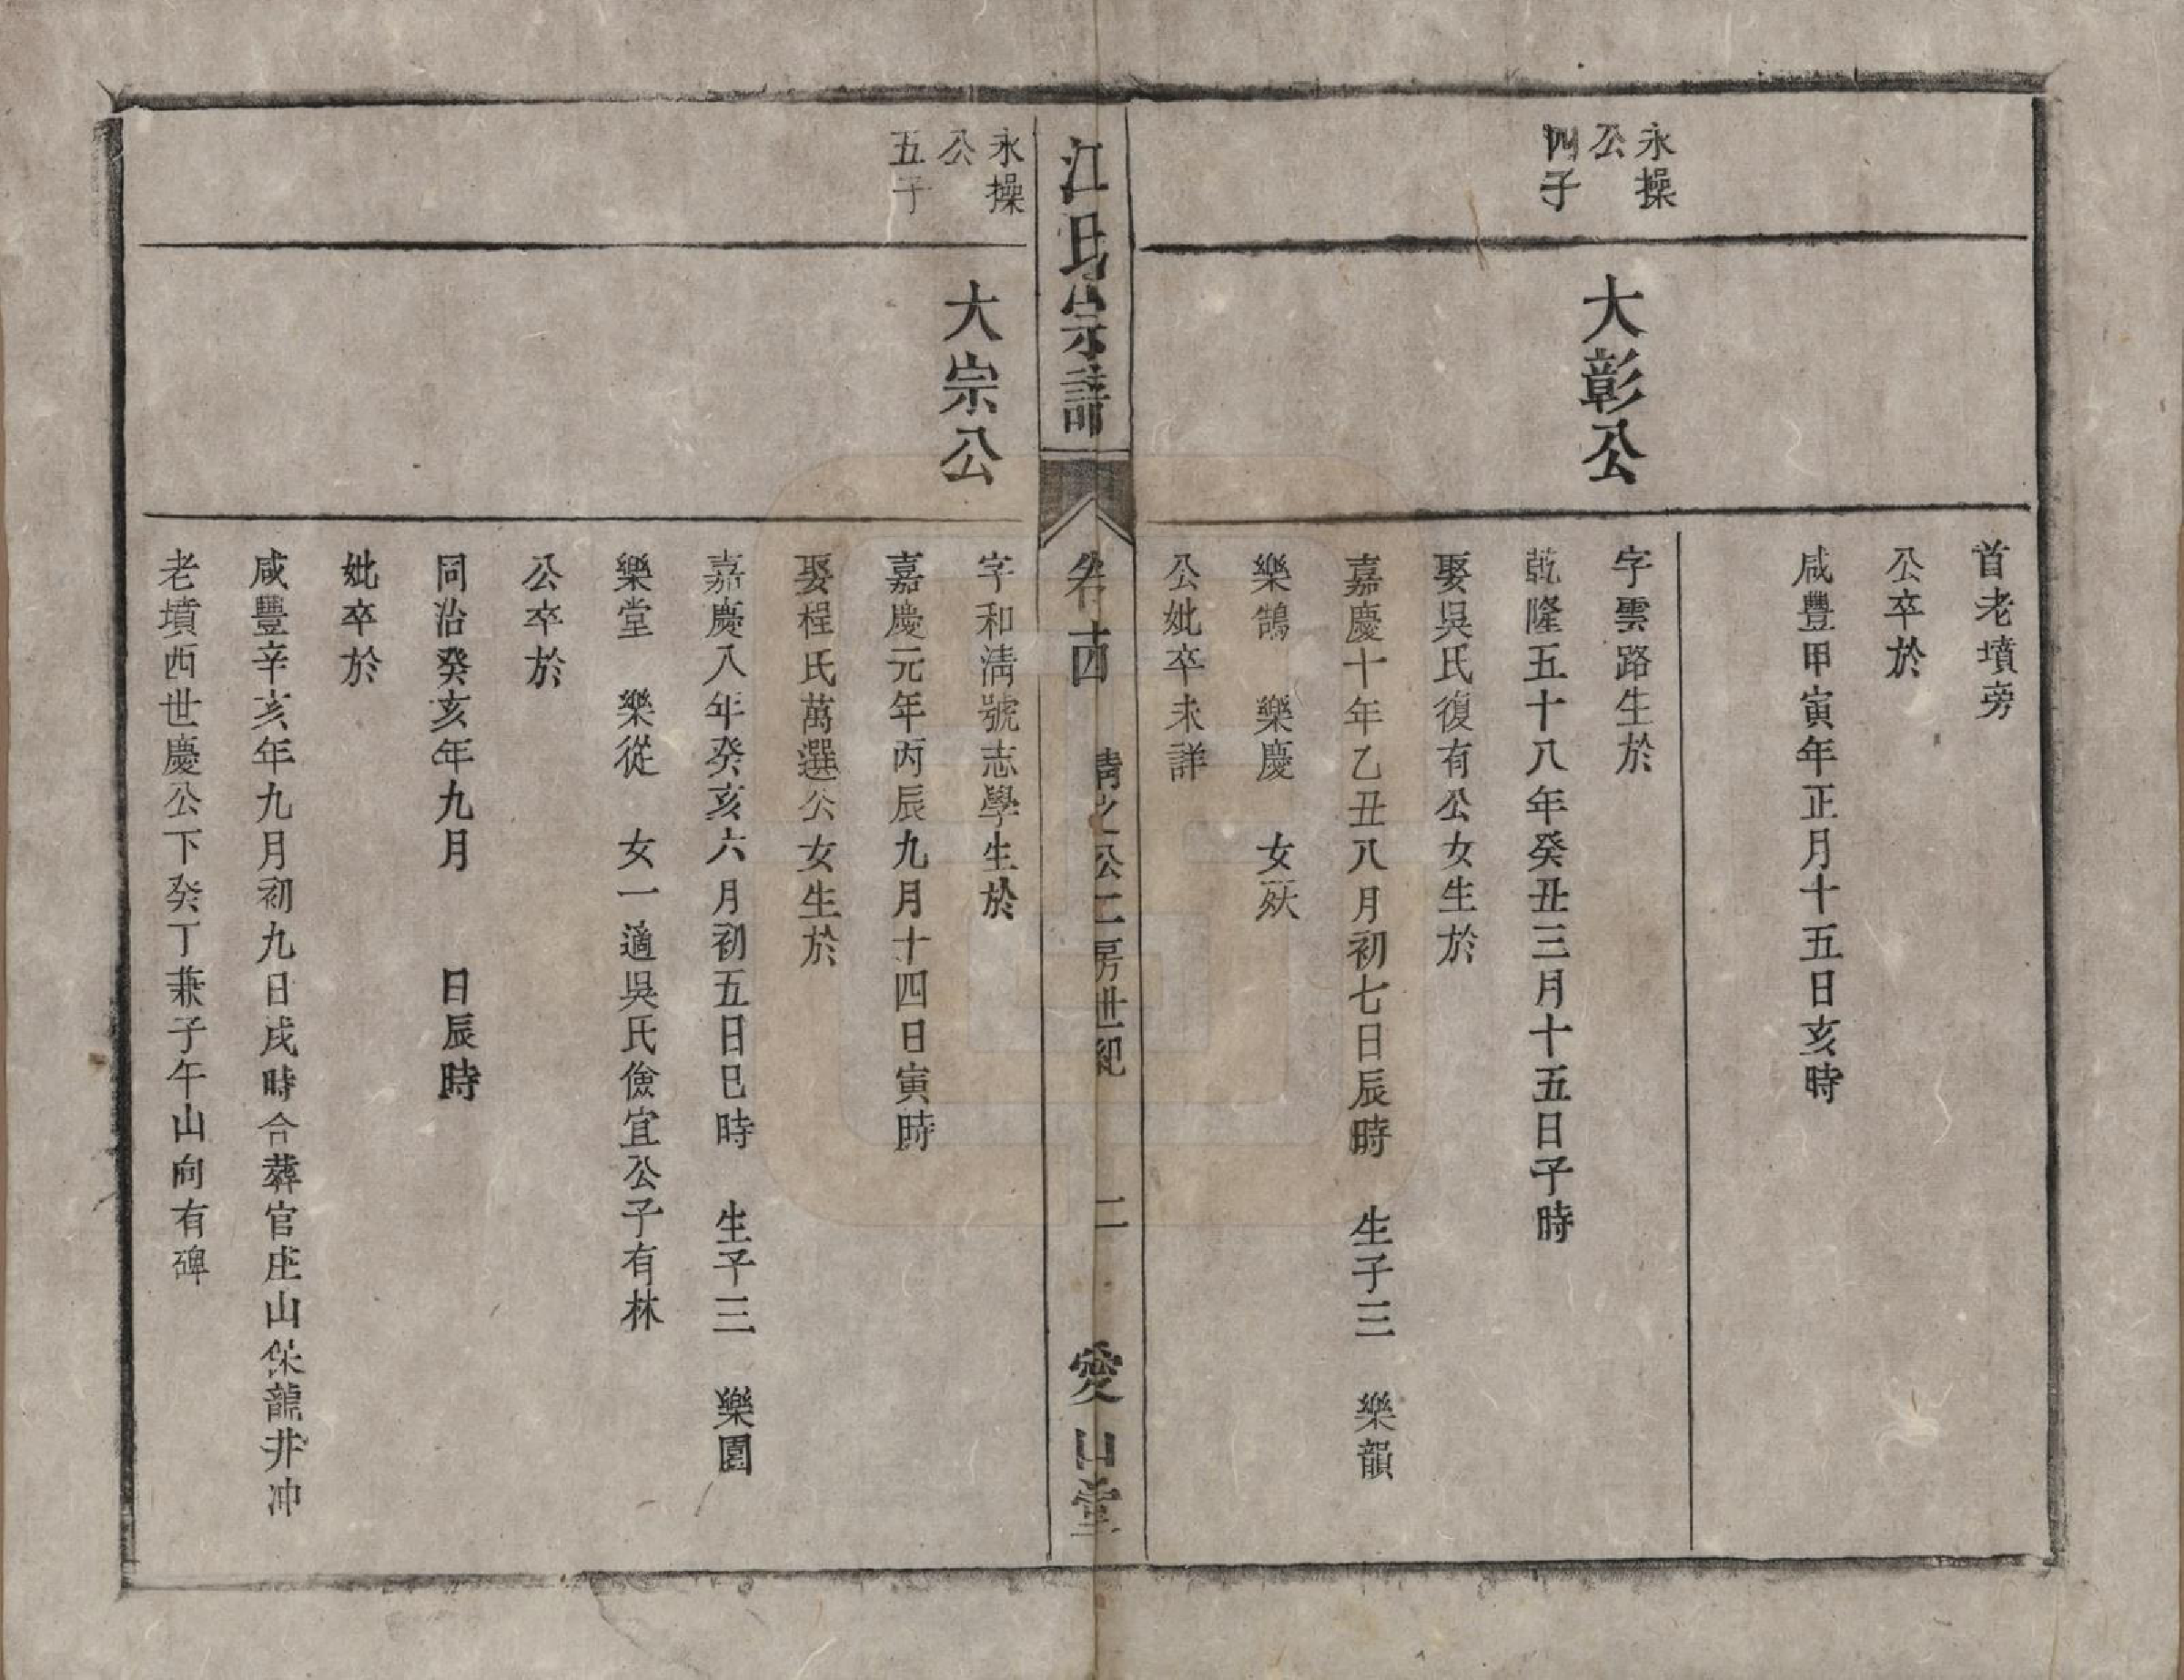 首老墳旁
公卒於
咸豐甲寅年正月十五日亥時
永操
公
四子
大彰公
字雲路生於
乾隆五十八年癸丑三月十五日子時
娶吳氏復有公女生於
嘉慶十年乙丑八月初七日辰時 生子三 樂韻
樂鵠 樂慶 女殀
公妣卒未詳
江氏宗譜
卷十四 清之公二房世紀 二 愛山堂
永操
公
五子
大宗公
字和清號志學生於
嘉慶元年丙辰九月十四日寅時
娶程氏萬選公女生於
嘉慶八年癸亥六月初五日巳時 生子三 樂園
樂堂 樂從 女一適吳氏儉宜公子有林
公卒於
同治癸亥年九月 日辰時
妣卒於
咸豐辛亥年九月初九日戌時合葬官庄山保龍井冲
老墳西世慶公下癸丁兼子午山向有碑